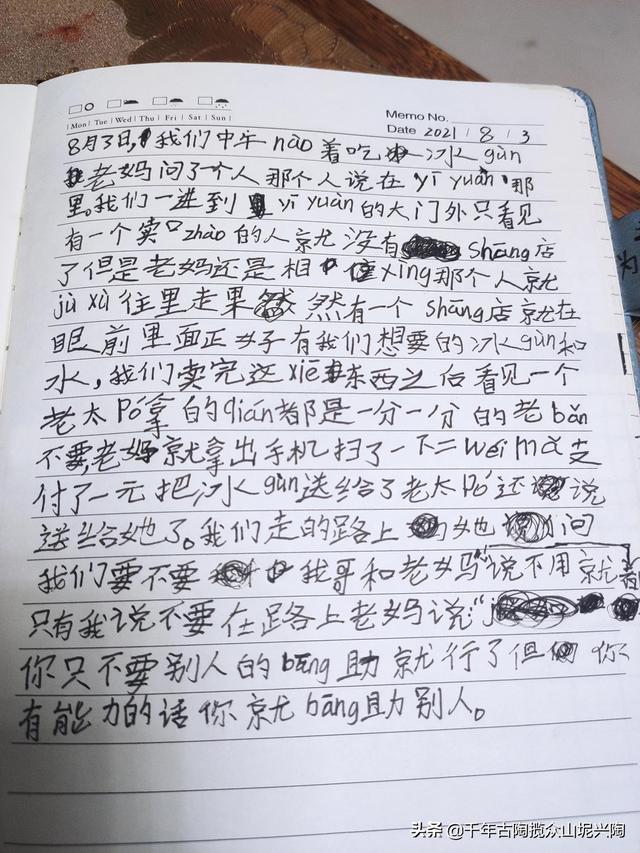 Mon Tue Wed Thu Fri Sat Sun
Memo No.
Date 2021 / 8 / 3
8月3日,我们中午nào着吃冰gùn
老妈问了个人那个人说在yī yuàn那
里。我们一进到yī yuàn的大门外只看见
有一个卖口zhào的人就没有shāng店
了但是老妈还是相信xìng那个人就
jù xù往里走果然有一个shāng店就在
眼前里面正好有我们想要的冰gùn和
水,我们卖完这xiē东西之后看见一个
老太Pó拿的qián都是一分一分的老bǎn
不要,老妈就拿出手机扫了一下二wéi mǎ支
付了一元把冰gùn送给了老太Pó还说
送给她了。我们走的路上她问
我们要不要我哥和老妈"说不用就
只有我说不要在路上老妈说:"
你只不要别人的bāng助就行了但你
有能力的话你就bāng助别人。
为
头条 @千年古陶揽众山坭兴陶